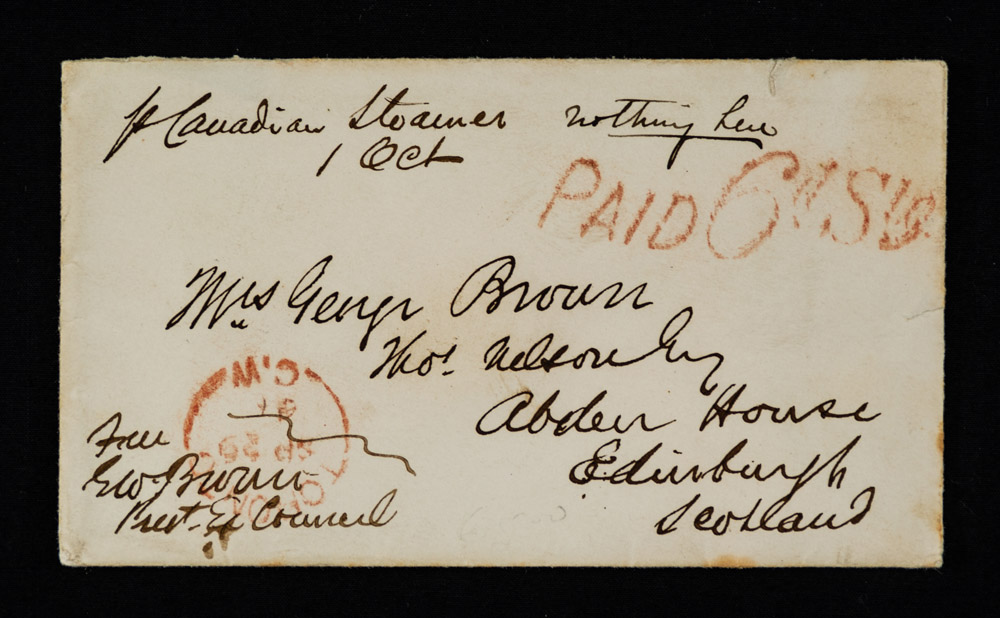 pr Canadian Steamer nothing here
1 Oct
PAID 6d. Stg.
Mrs George Brown
Thos. Nelson Esq
Abden House
Edinburgh
Scotland
C.W.
Free
Geo Brown
Prest. Ex Council